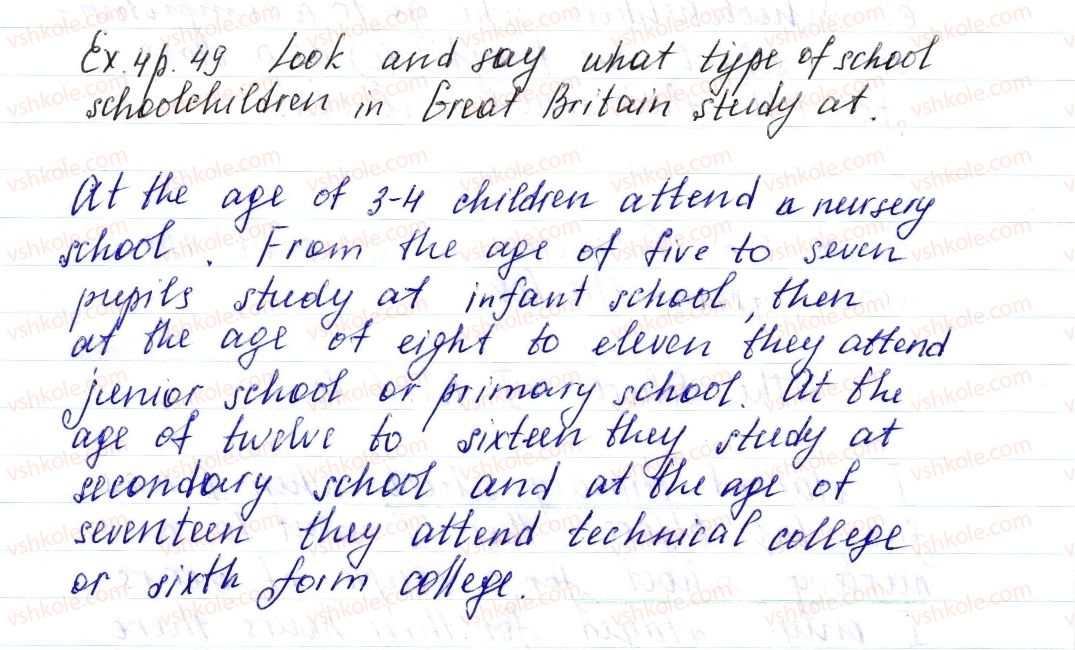 Ex. 4 p. 49 Look and say what type of school
schoolchildren in Great Britain study at.
At the age of 3-4 children attend a nursery
school. From the age of five to seven
pupils study at infant school, then
at the age of eight to eleven they attend
junior school or primary school. At the
age of twelve to sixteen they study at
secondary school and at the age of
seventeen they attend technical college
or sixth form college.